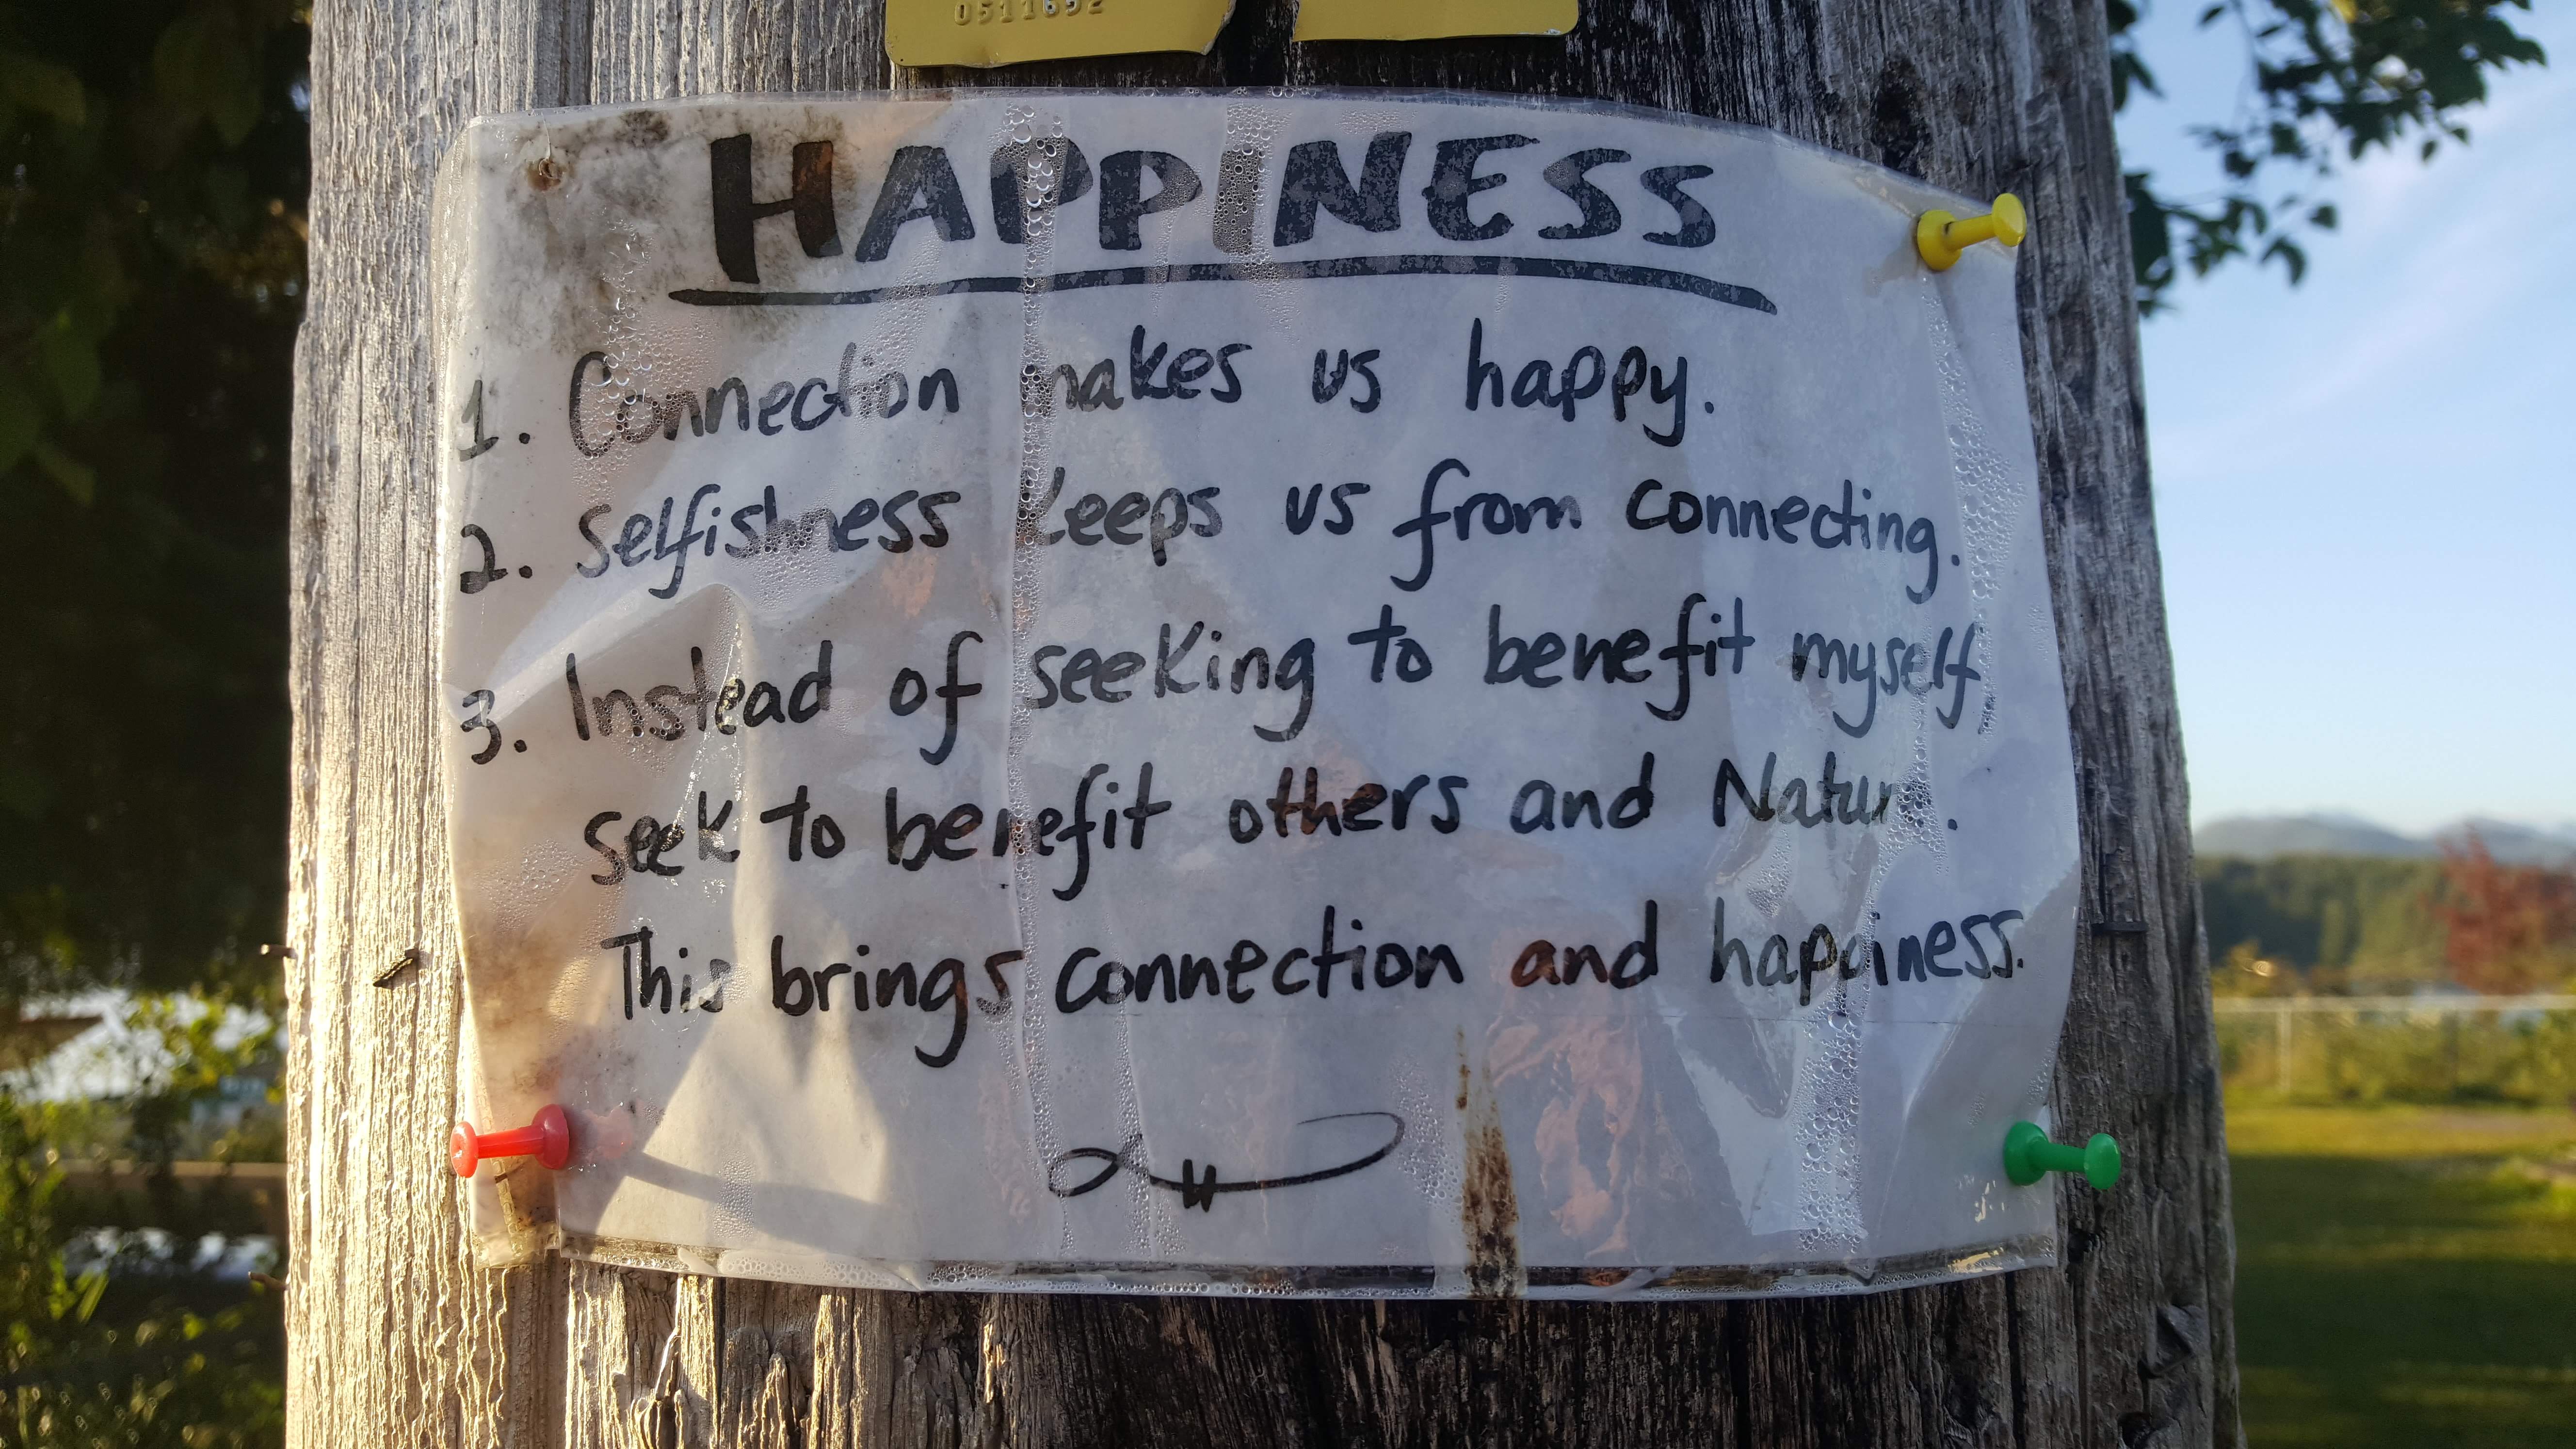 0511692
HAPPINESS
1. Connection makes us happy.
2. Selfishness keeps us from connecting.
3. Instead of seeking to benefit myself,
seek to benefit others and Nature.
This brings connection and happiness.